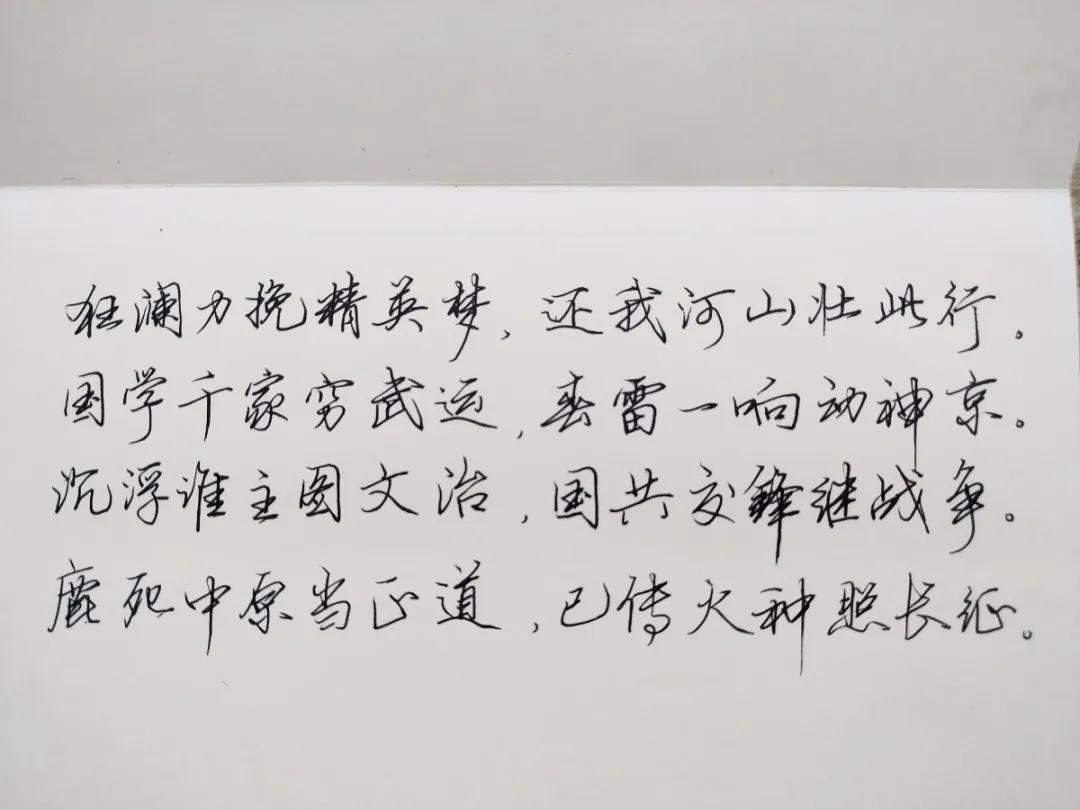 狂澜力挽精英梦,还我河山壮此行。
国学千家穷武运,春雷一响动神京。
沉浮谁主图文治,国共交锋继战争。
鹿死中原当正道,已传火种照长征。